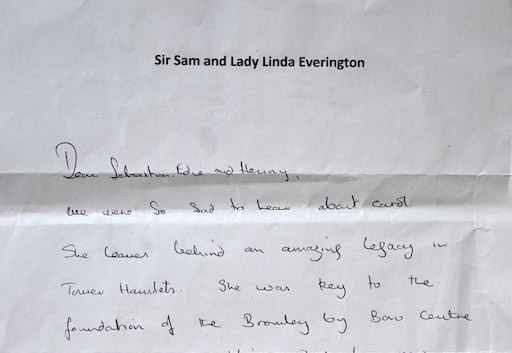 Sir Sam and Lady Linda Everington
Dear Sebastian Edie and Henny,
we were so sad to hear about carol
She leaves behind an amazing legacy in
Tower Hamlets. She was key to the
foundation of the Bromley by Bow Centre